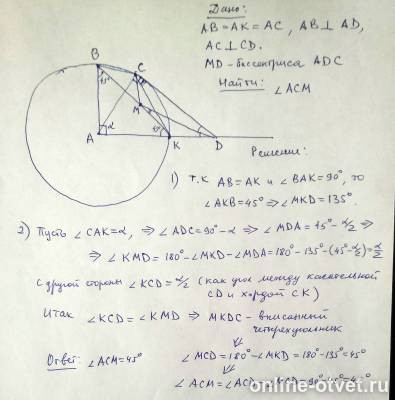 Дано:
AB = AK = AC, AB ⊥ AD,
AC ⊥ CD.
MD - биссектриса ADC
Найти:
∠ACM
B
C
45°
M
A
α
45°
K
D
Решение:
1) т.к AB = AK и ∠BAK = 90°, то
∠AKB = 45° ⇒ ∠MKD = 135°.
2) Пусть ∠CAK = α, ⇒ ∠ADC = 90° - α ⇒ ∠MDA = 45° - α/2 ⇒
⇒ ∠KMD = 180° - ∠MKD - ∠MDA = 180° - 135° - (45° - α/2) = α/2
С другой стороны ∠KCD = α/2 (как угол между касательной
CD и хордой CK)
Итак ∠KCD = ∠KMD ⇒ MKDC - вписанный
четырехугольник
⇓
Ответ: ∠ACM = 45°
∠MCD = 180° - ∠MKD = 180° - 135° = 45°
⇓
∠ACM = ∠ACD
online-otvet.ru